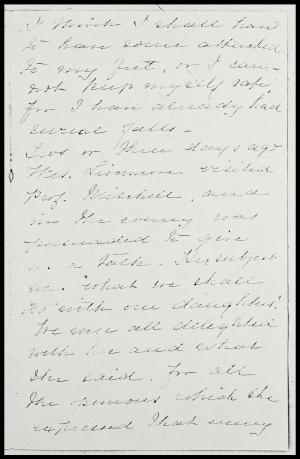 I think I shall have
to have some attached
to my feet, or I can-
not keep myself safe,
for I have already had
several falls -
Two or three days ago
Mrs. Livermore visited
Prof. Mitchell, and
in the evening was
persuaded to give
us a talk. Her subject
was "What we shall
do with our daughters."
We were all delighted
with her and what
she said. For all
the opinions which she
expressed I had every